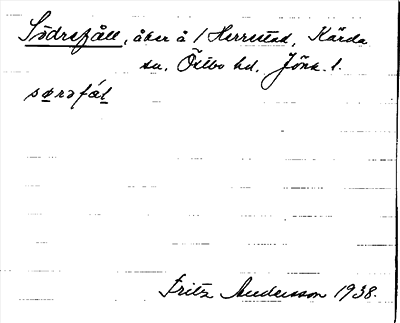 Södrefåll, åker å 1 Herrestad, Kärda
sn. Östbo hd. Jönk. l.
sørəfål
Fritz Andersson 1938.